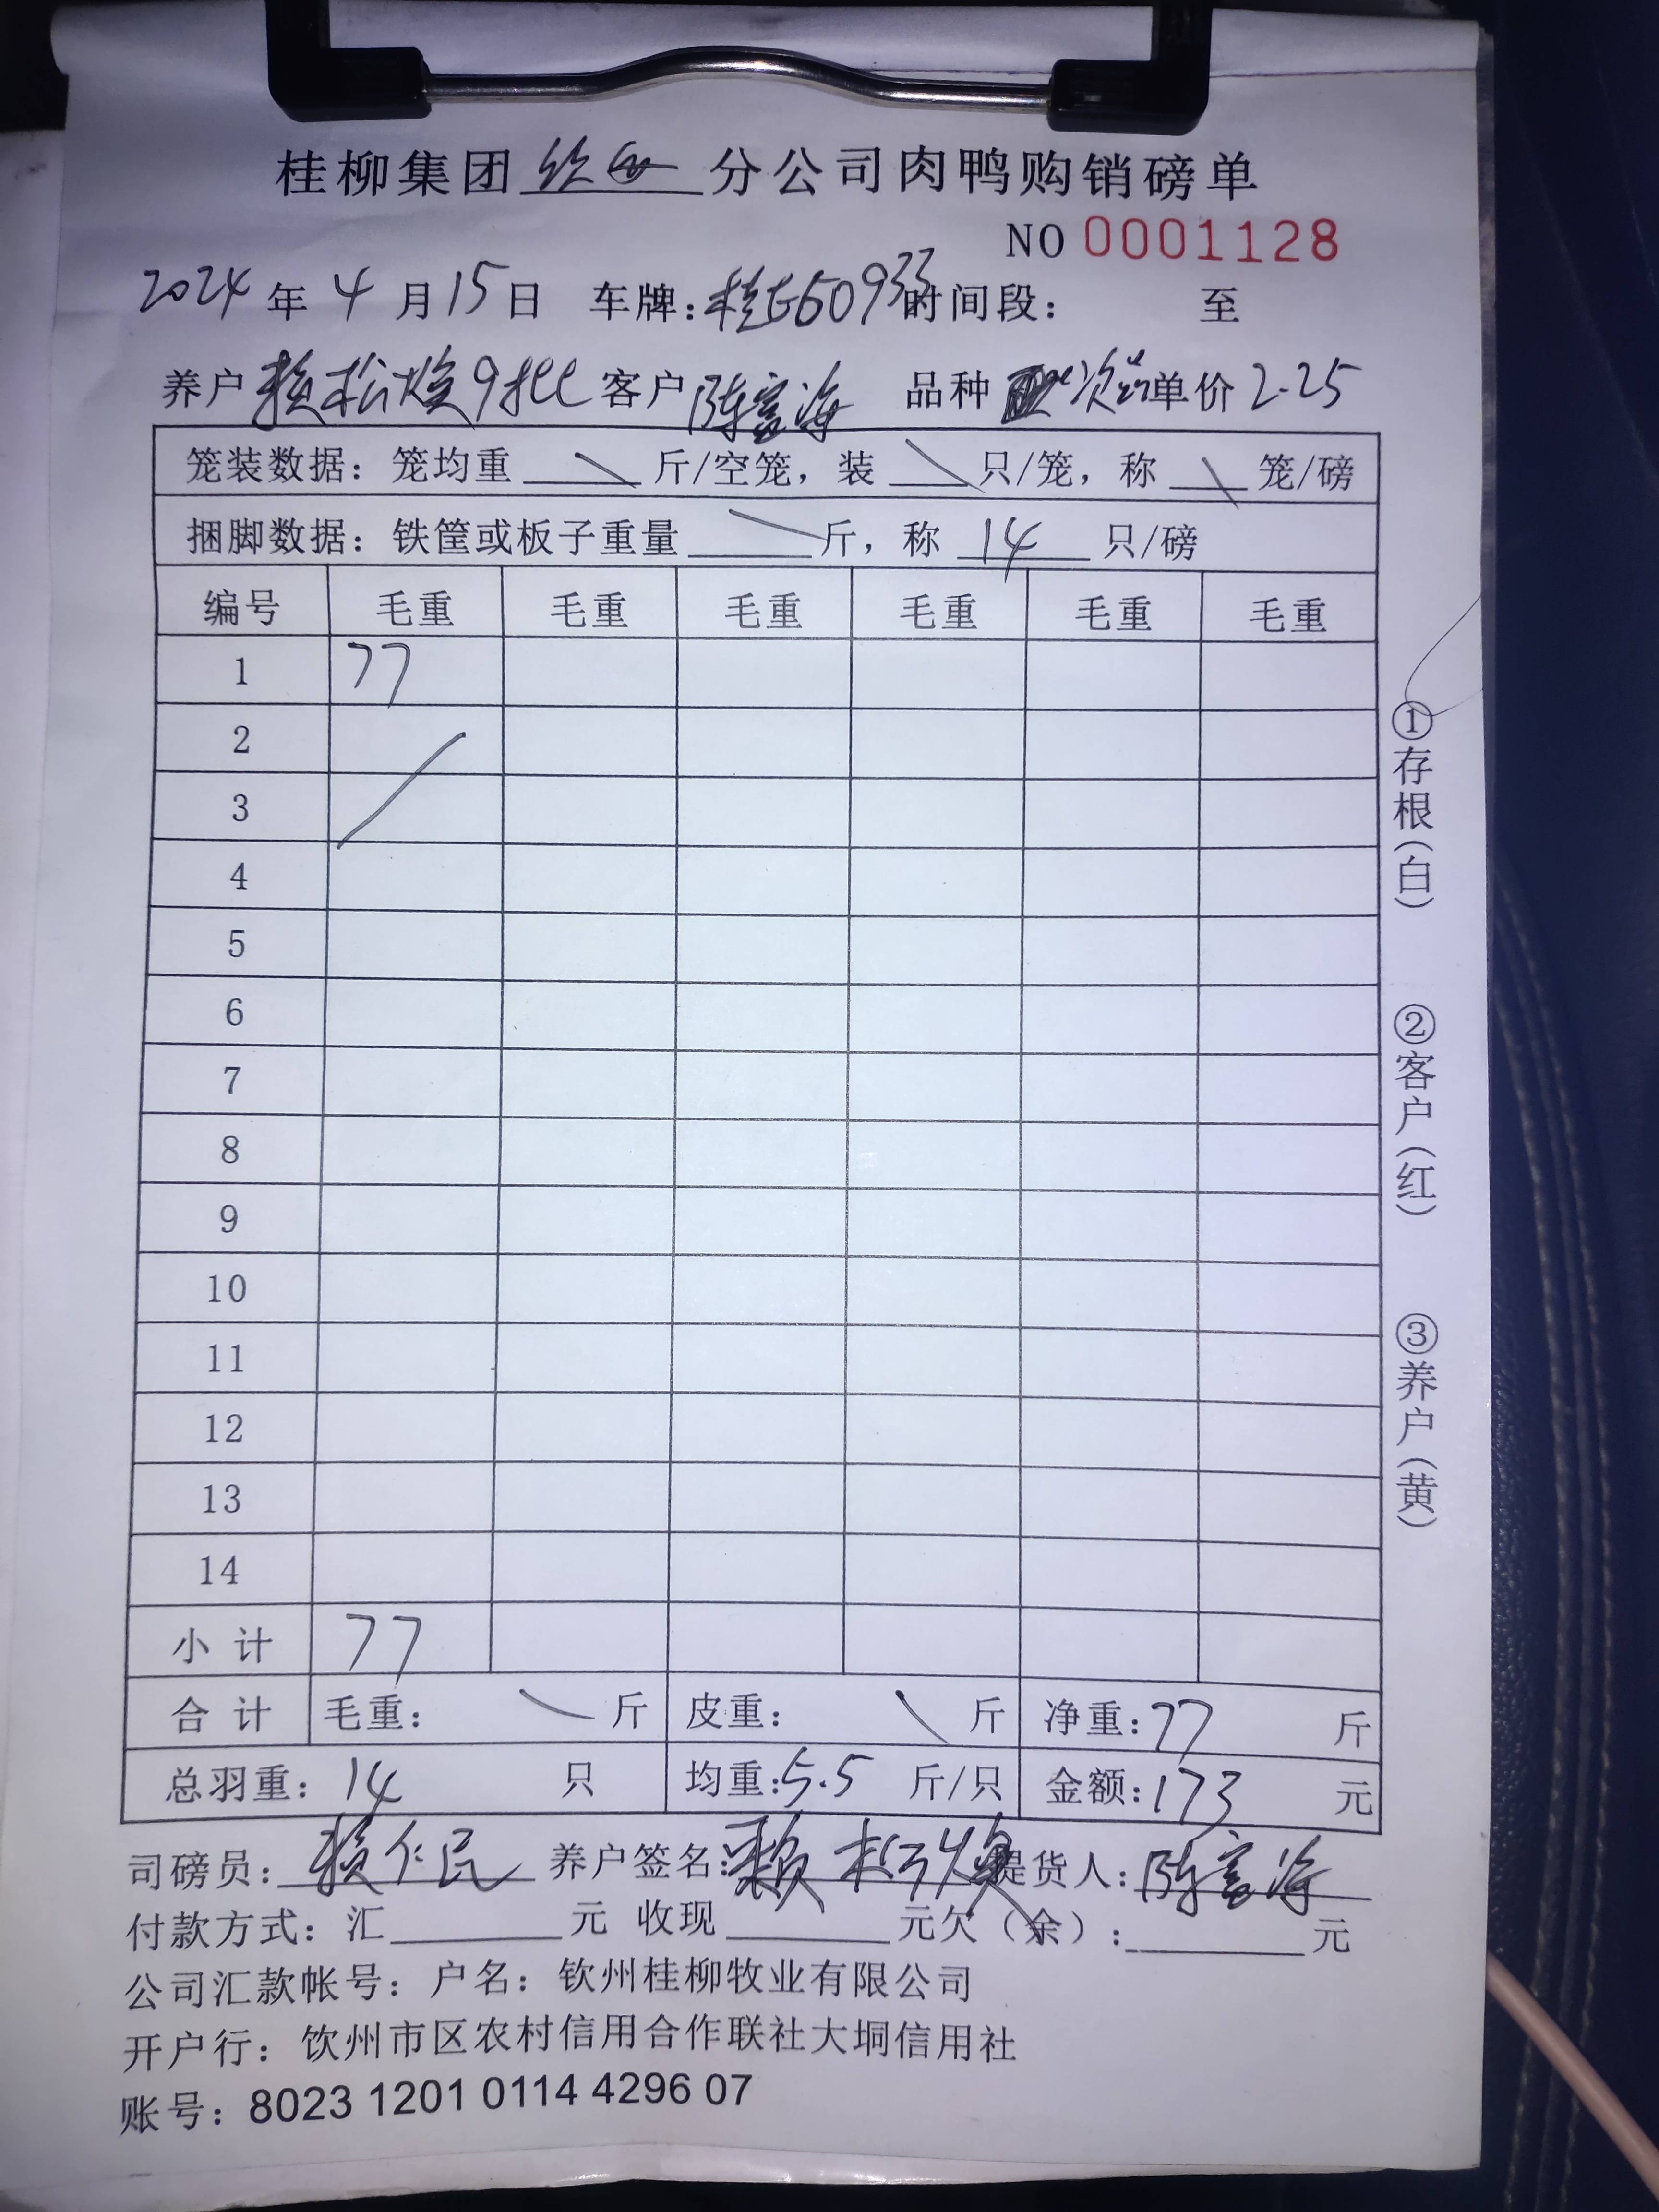 桂柳集团 分公司肉鸭购销磅单
NO 0001128
2024 年 4 月 15 日 车牌: 时间段: 至
养户 赖松焕9批 客户 陈富海 品种 次品 单价 2.25
笼装数据: 笼均重 斤/空笼, 装 只/笼, 称 笼/磅
捆脚数据: 铁筐或板子重量 斤, 称 14 只/磅
编号 毛重 毛重 毛重 毛重 毛重 毛重
1 77
2
3
4
5
6
7
8
9
10
11
12
13
14
小 计 77
合 计 毛重: 斤 皮重: 斤 净重: 77 斤
总羽重: 14 只 均重: 5.5 斤/只 金额: 173 元
司磅员: 赖仁民 养户签名: 赖松焕 提货人: 陈富海
付款方式: 汇 元 收现 元欠(余): 元
公司汇款帐号: 户名: 钦州桂柳牧业有限公司
开户行: 钦州市区农村信用合作联社大垌信用社
账号: 8023 1201 0114 4296 07
①存根(白)
②客户(红)
③养户(黄)